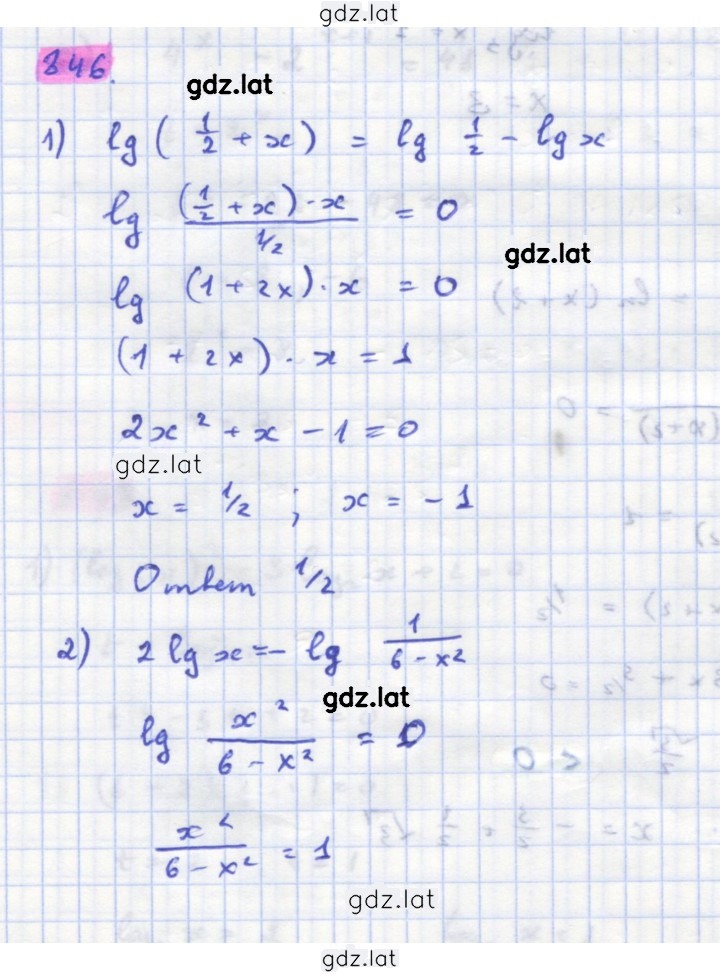 gdz.lat
846.
gdz.lat
1) lg ( 1/2 + x ) = lg 1/2 - lg x
lg ((1/2 + x) · x)/(1/2) = 0
gdz.lat
lg (1 + 2x) · x = 0
(1 + 2x) · x = 1
2x² + x - 1 = 0
gdz.lat
x = 1/2 ; x = -1
Ответ 1/2
2) 2 lg x = - lg 1/(6 - x²)
gdz.lat
lg x²/(6 - x²) = 0
x²/(6 - x²) = 1
gdz.lat
gdz.lat